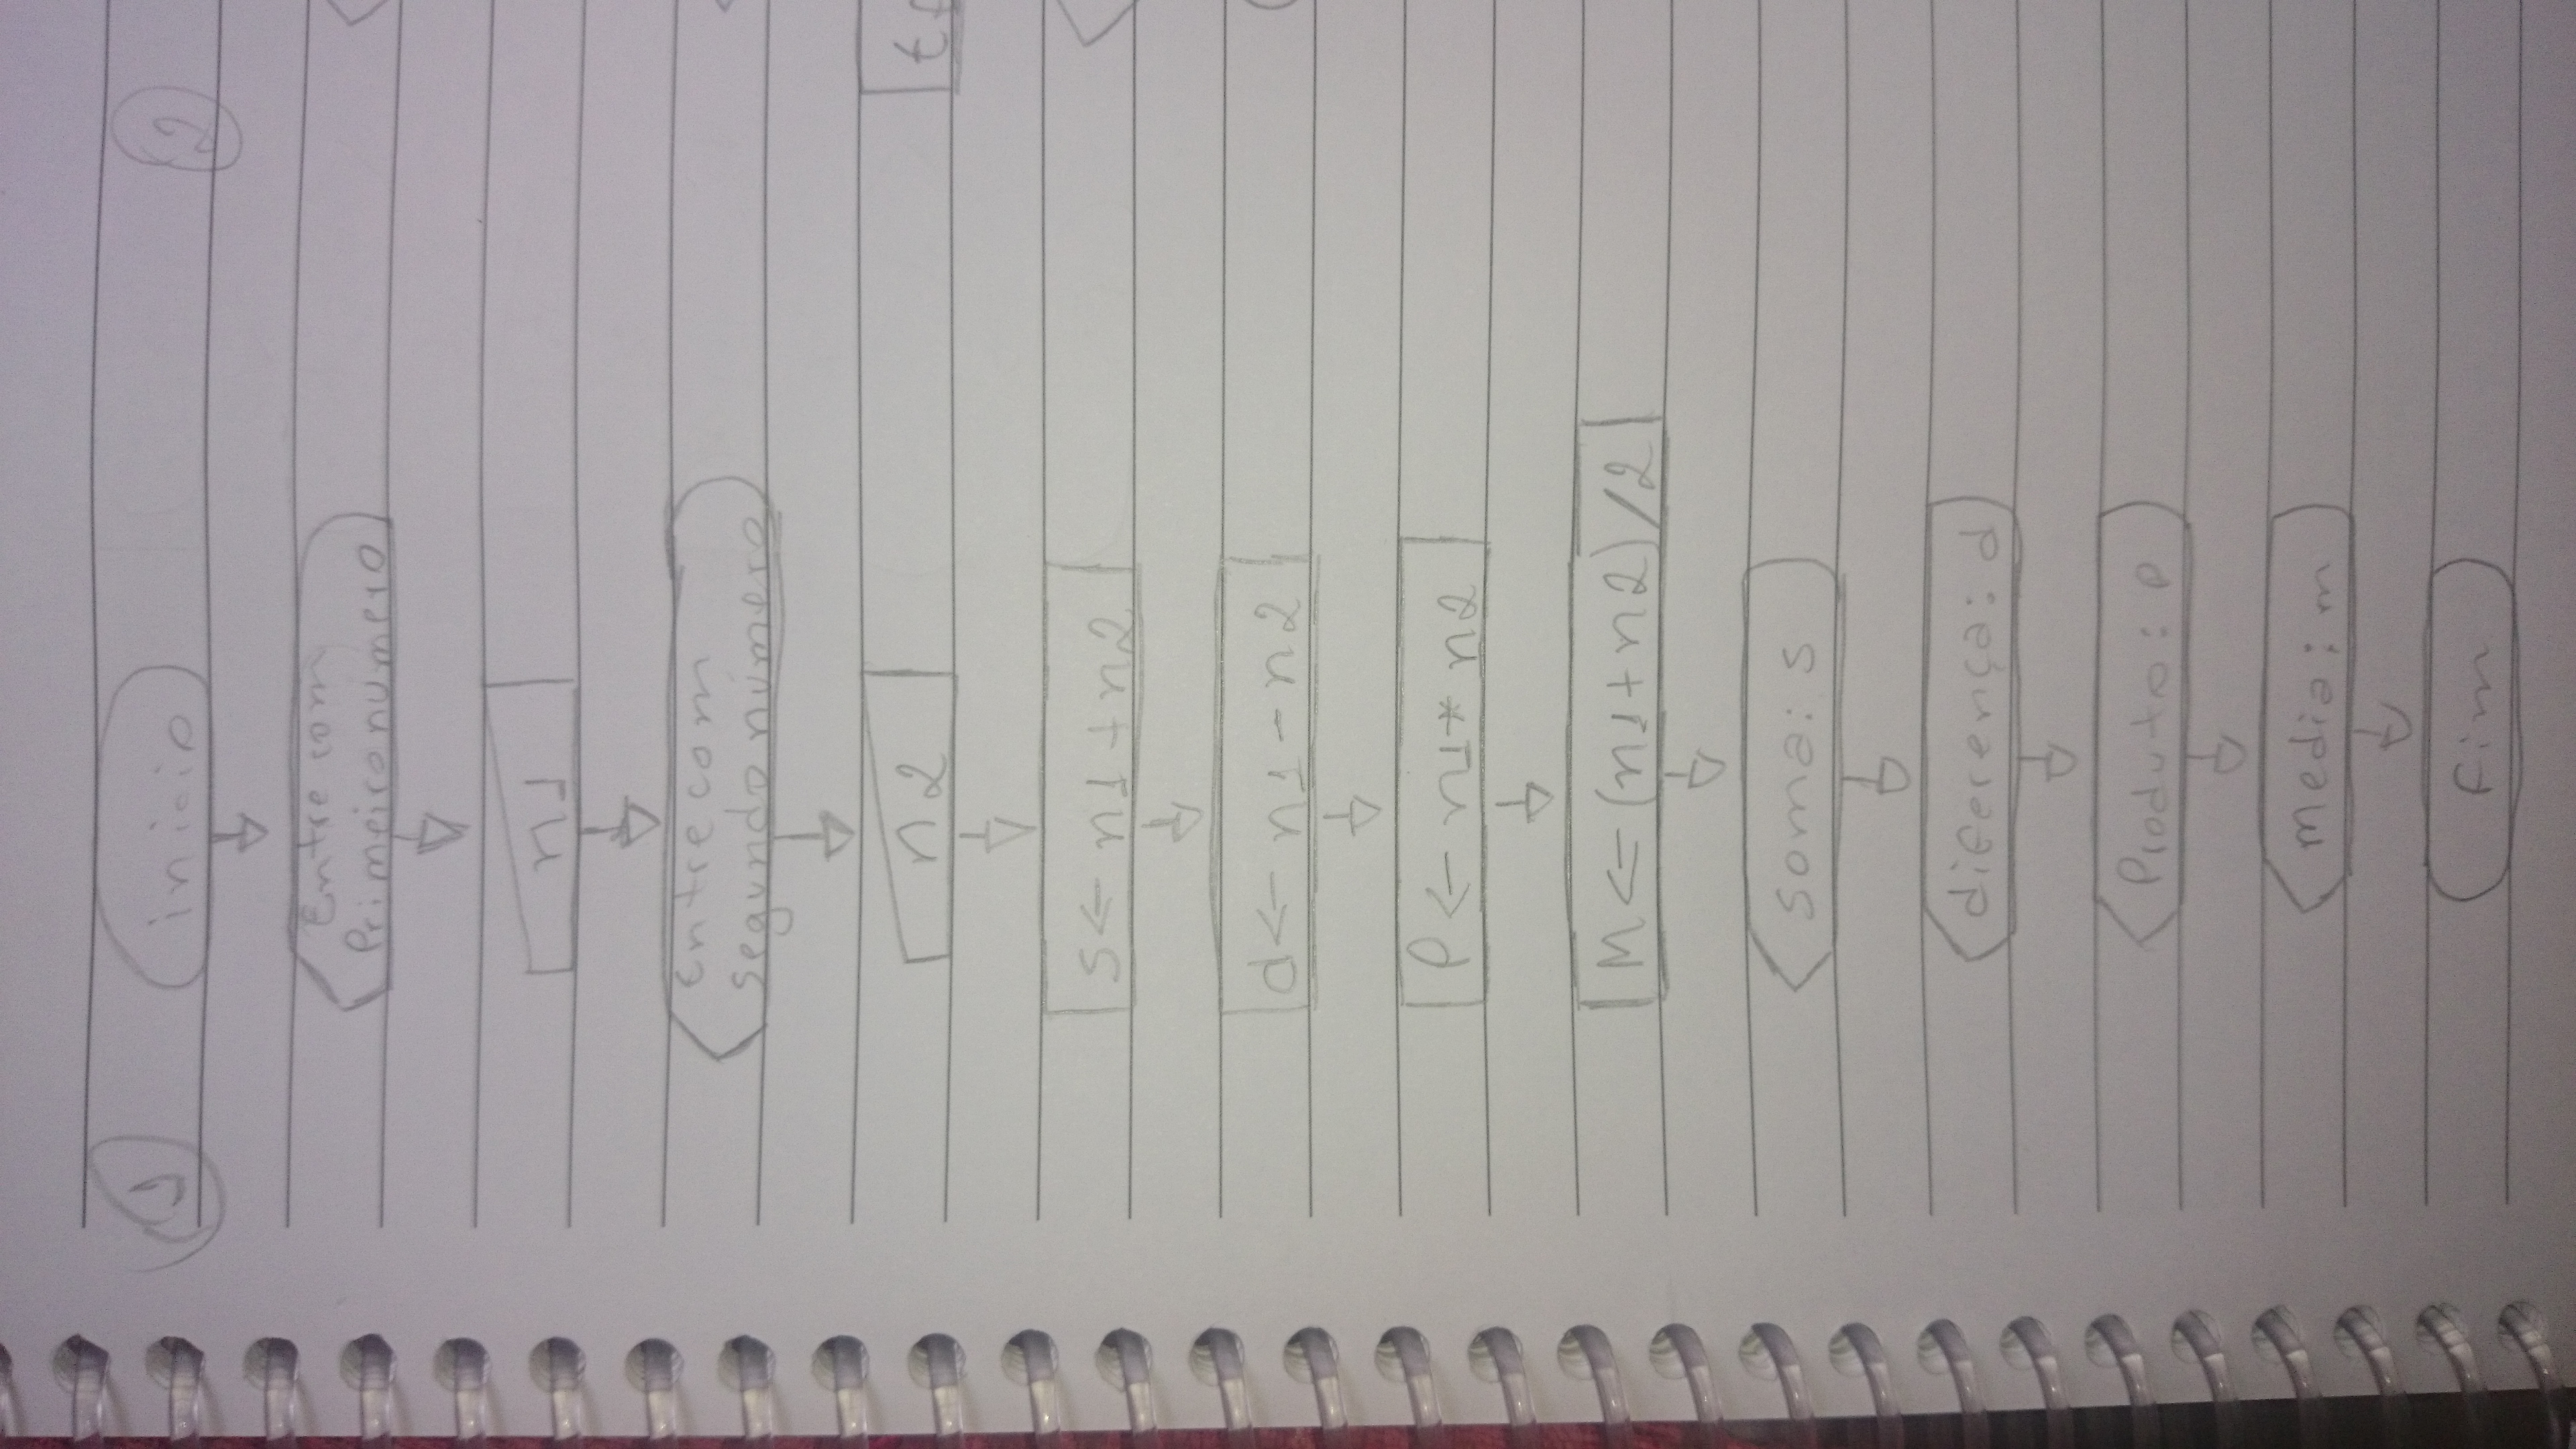 1
inicio
Entre com
Primeiro número
n1
Entre com
Segundo número
n2
s ← n1 + n2
d ← n1 - n2
p ← n1 * n2
M ← (n1 + n2) / 2
Soma: s
diferença: d
Produto: p
media: m
Fim
2